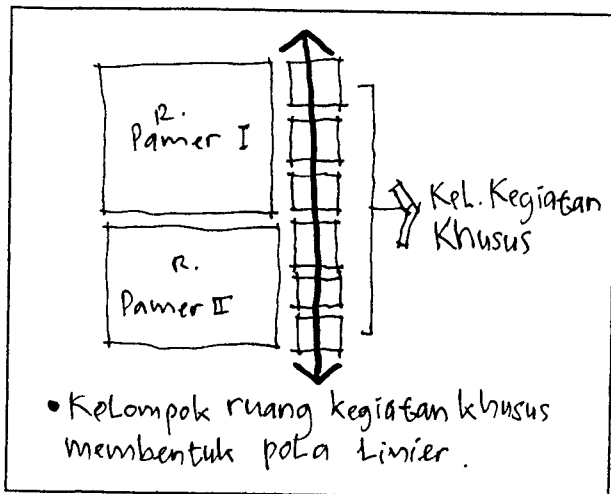 R.
Pamer I
R.
Pamer II
Kel. Kegiatan
Khusus
• Kelompok ruang kegiatan khusus
membentuk pola Linier.